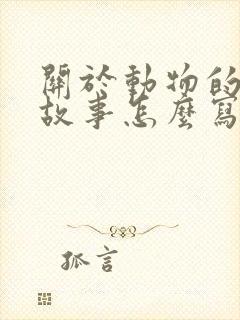 關於動物的
故事怎麼寫
孤言